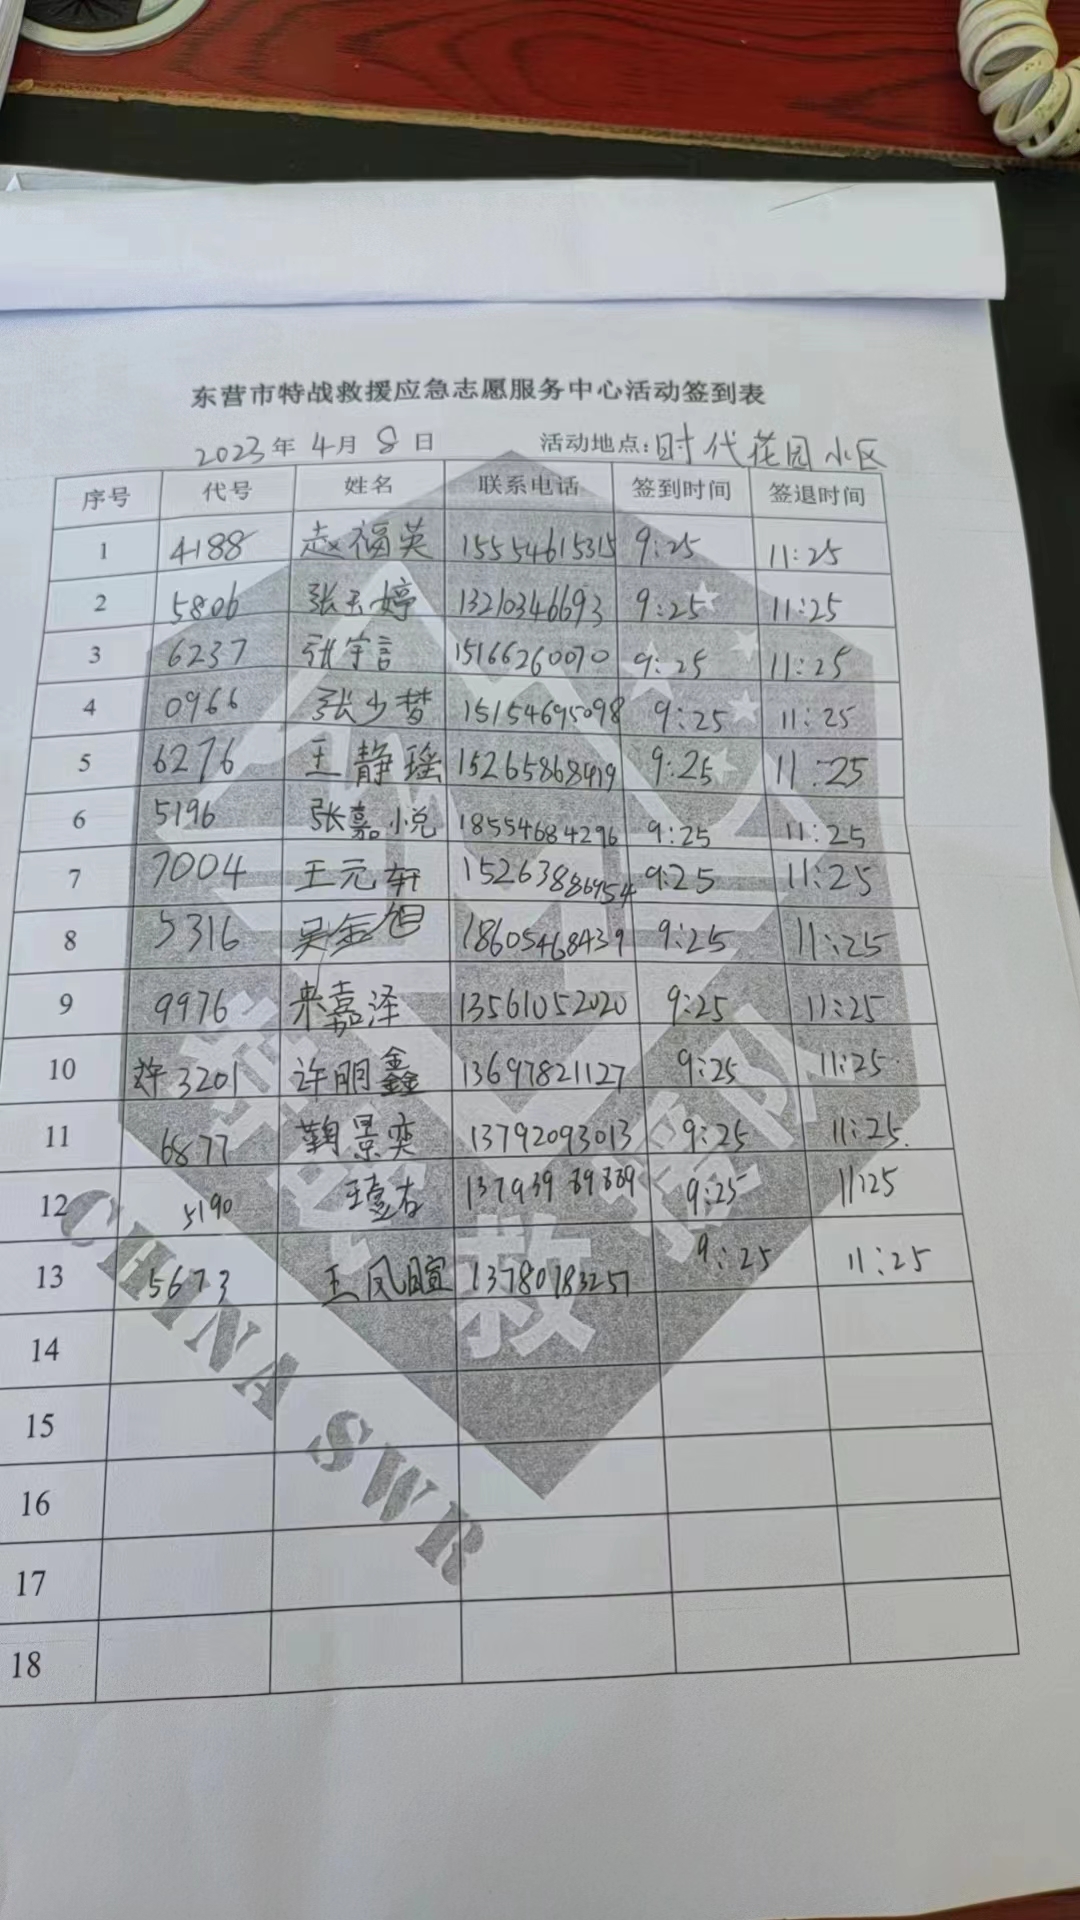 东营市特战救援应急志愿服务中心活动签到表
2023年4月8日 活动地点:时代花园小区
序号 代号 姓名 联系电话 签到时间 签退时间
1 4188 赵福英 15554615315 9:25 11:25
2 5806 张玉婷 13210346693 9:25 11:25
3 6237 张宇言 15166260070 9:25 11:25
4 0966 张少梦 15154695098 9:25 11:25
5 6276 王静瑶 15265868419 9:25 11:25
6 5196 张嘉悦 18554684296 9:25 11:25
7 7004 王元轩 15263886954 9:25 11:25
8 5316 吴金旭 18605468439 9:25 11:25
9 9976 来嘉泽 13561052020 9:25 11:25
10 许3201 许朋鑫 13697821127 9:25 11:25
11 6877 鞠景奕 13792093013 9:25 11:25
12 5190 13793989889 9:25 11:25
13 5673 王凤暄 13780783257 9:25 11:25
14
15
16
17
18
特战救援队
CHINA SWR